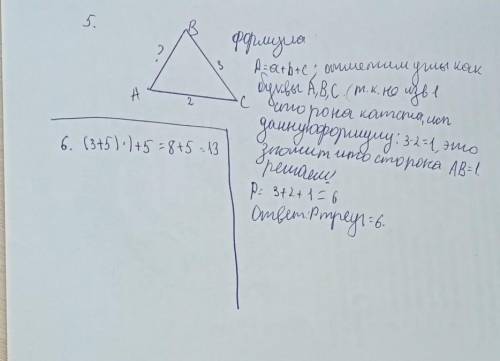 5.
B
?
3
A
2
C
формула
A=a+b+c; отметим углы как
буквы A,B,C. (т.к. 1
сторона
данную формулу: 3-2=1, это
значит что сторона AB=1.
решаем!
P= 3+2+1=6
Ответ: Pтреуг=6.
6. (3+5)·)+5=8+5=13